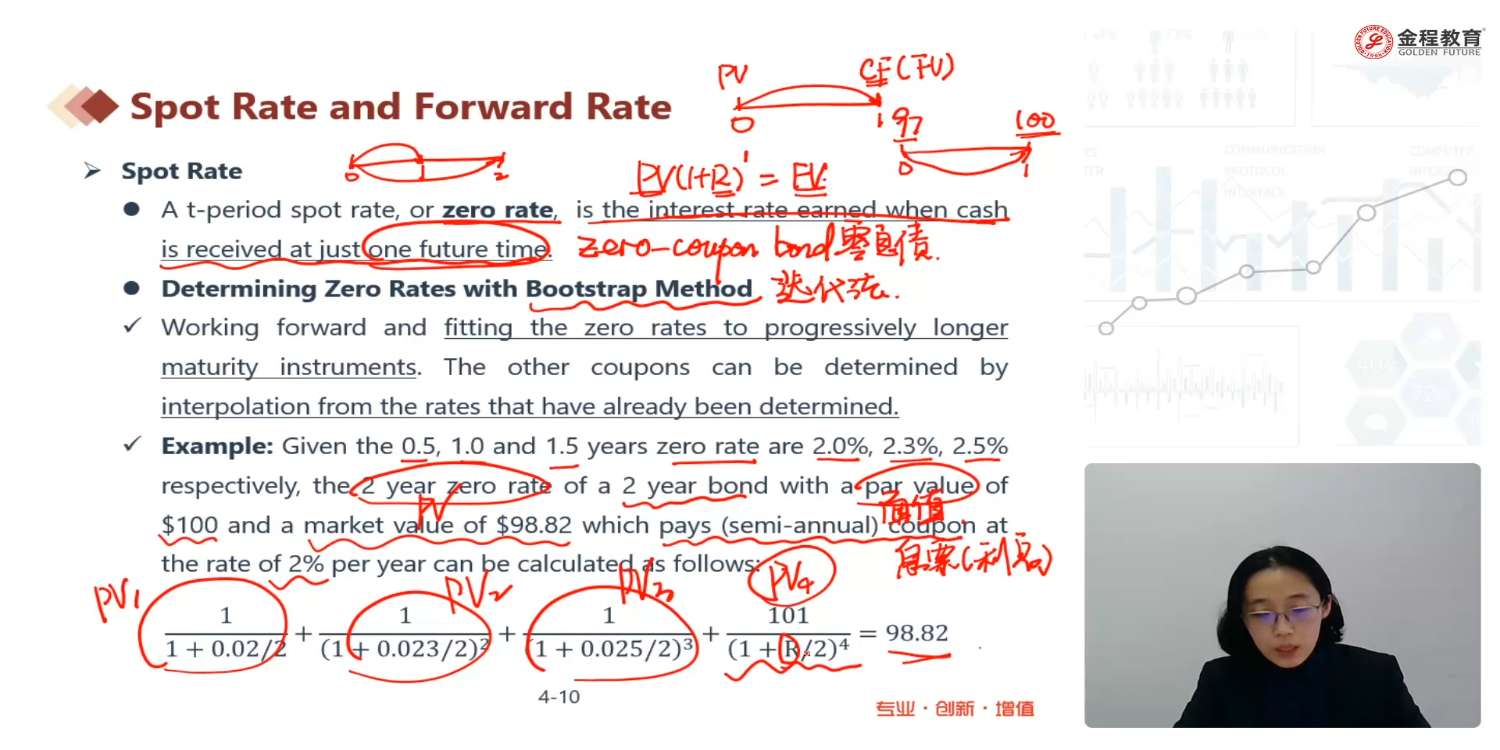 金程教育
GOLDEN FUTURE
Spot Rate and Forward Rate
PV
CF(FV)
0
1
97
100
0
1
0
1
2
PV(1+R)¹ = FV
Spot Rate
A t-period spot rate, or zero rate, is the interest rate earned when cash
is received at just one future time.
zero-coupon bond 零息债.
Determining Zero Rates with Bootstrap Method
迭代法.
Working forward and fitting the zero rates to progressively longer
maturity instruments. The other coupons can be determined by
interpolation from the rates that have already been determined.
Example: Given the 0.5, 1.0 and 1.5 years zero rate are 2.0%, 2.3%, 2.5%
respectively, the 2 year zero rate of a 2 year bond with a par value of
PV
面值
$100 and a market value of $98.82 which pays (semi-annual) coupon at
息票(利息)
the rate of 2% per year can be calculated as follows:
PV₁
PV₂
PV₃
PV₄
1/(1 + 0.02/2) + 1/(1 + 0.023/2)² + 1/(1 + 0.025/2)³ + 101/(1 + R/2)⁴ = 98.82
4-10
专业·创新·增值